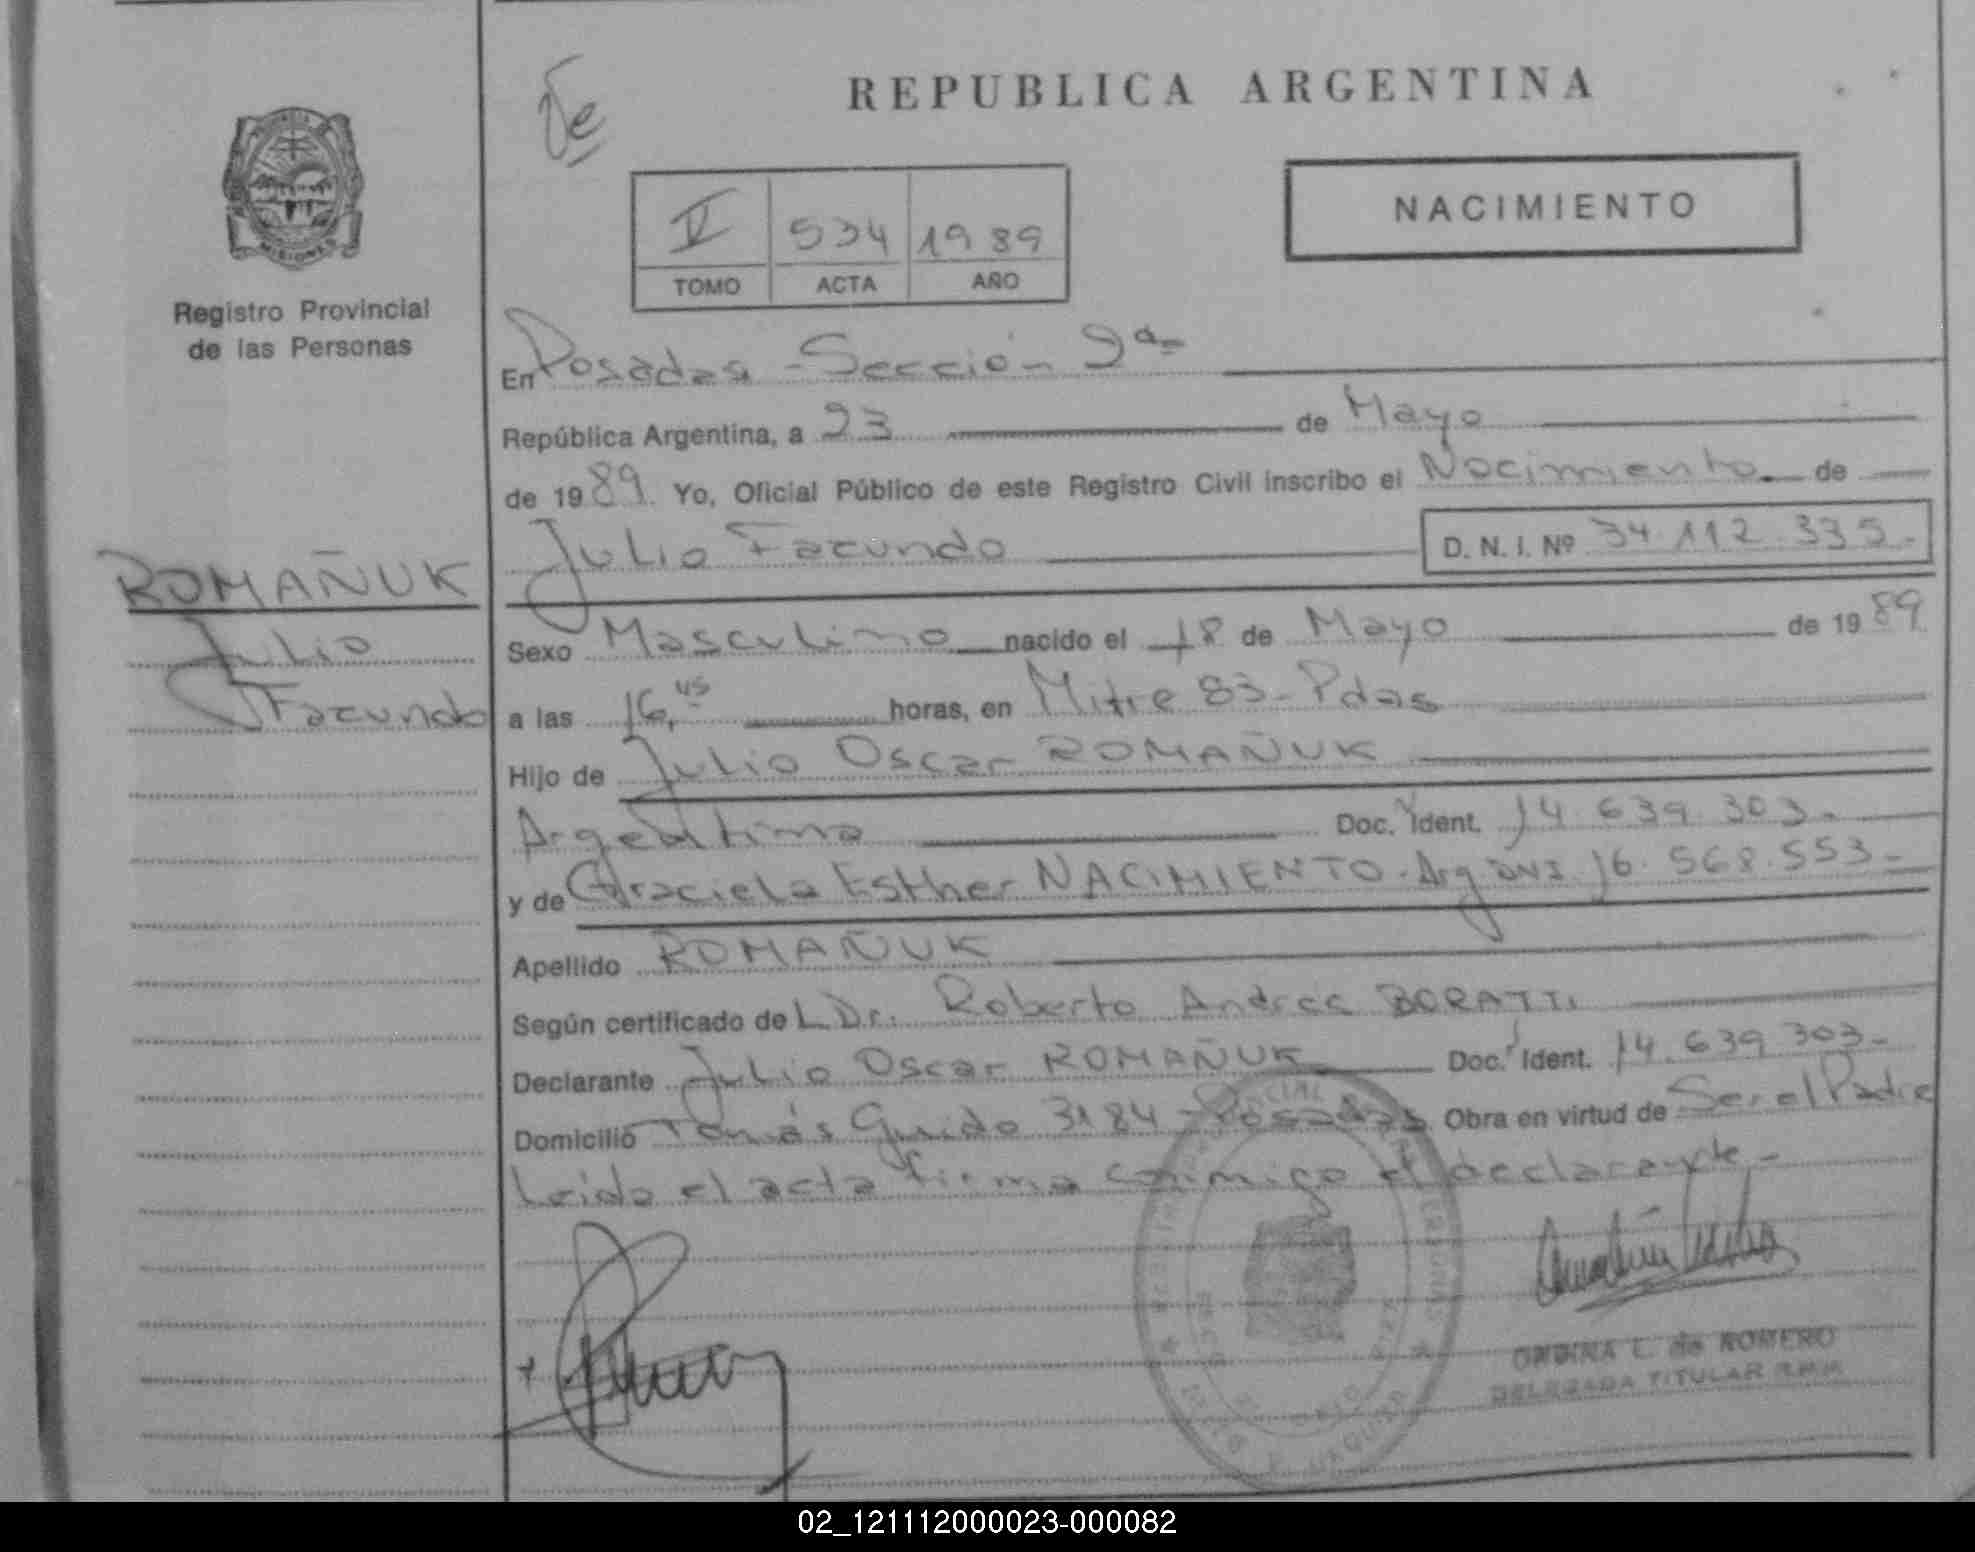 REPUBLICA ARGENTINA
MISIONES
Registro Provincial
de las Personas
NACIMIENTO
V 534 1989
TOMO ACTA AÑO
En Posadas - Sección 2ª
República Argentina, a 23 de Mayo
de 1989. Yo, Oficial Público de este Registro Civil inscribo el Nacimiento de
Julio Facundo D. N. I. Nº 34.112.335.-
ROMAÑUK
Julio
Facundo
Sexo Masculino nacido el 18 de Mayo de 1989
a las 16,45 horas, en Mitre 83 - Pdas
Hijo de Julio Oscar ROMAÑUK
Argentino Doc. Ident. 14.639.303.-
y de Graciela Esther NACIMIENTO - Arg DNI 16.568.553-
Apellido ROMAÑUK
Según certificado de L Dr. Roberto Andrés BORATTI
Declarante Julio Oscar ROMAÑUK Doc. Ident. 14.639.303-
Domicilio Tomás Guido 3184 - Posadas Obra en virtud de Ser el Padre
Leida el acta firma conmigo el declarante -
ONDINA L. de ROMERO
DELEGADA TITULAR R.P.P.
02_121112000023-000082